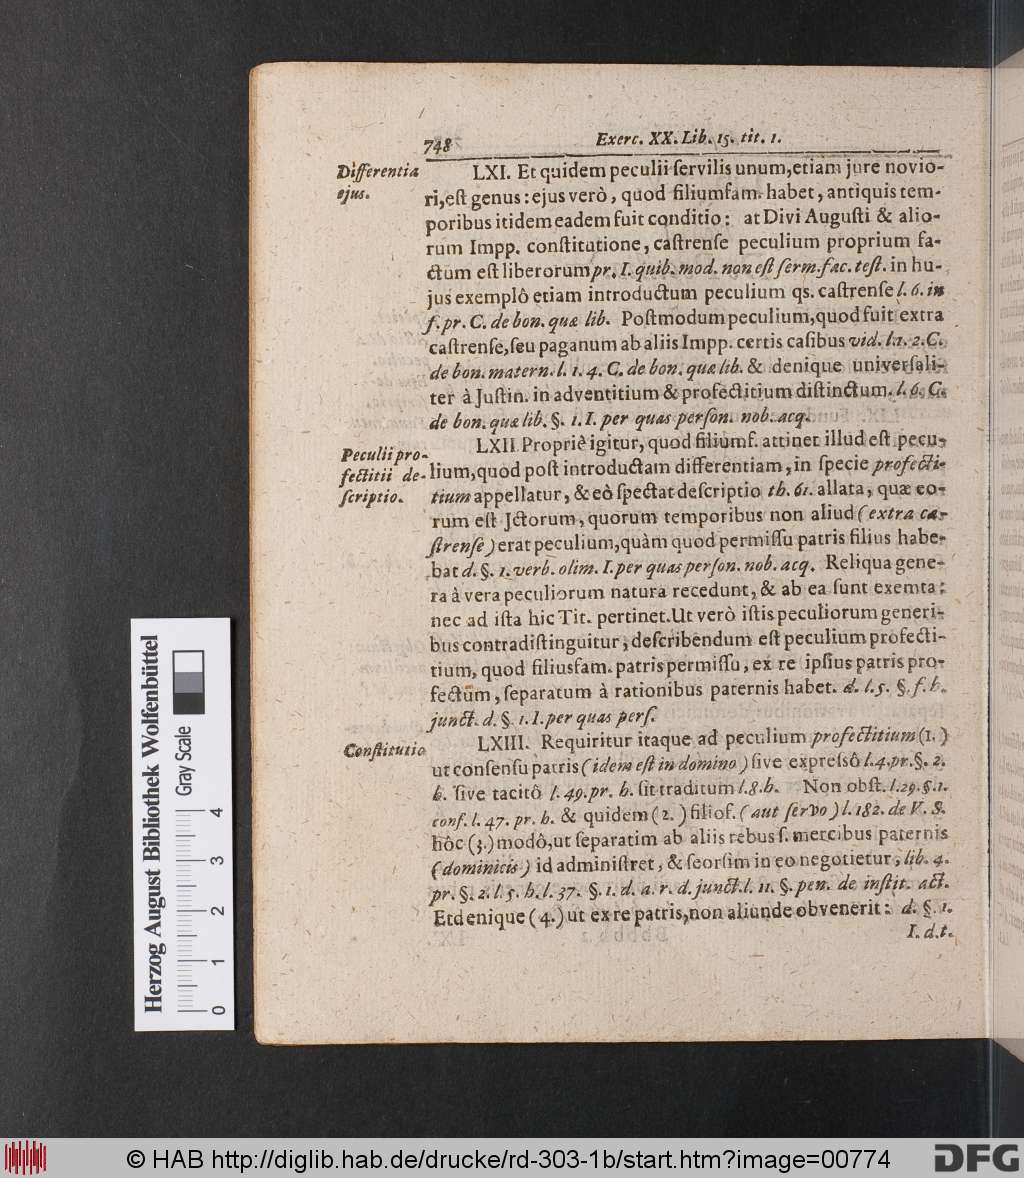 748 Exerc. XX. Lib. 15. tit. 1.
Differentia
ejus.
LXI. Et quidem peculii servilis unum, etiam jure novio-
ri, est genus: ejus verò, quod filiumfam. habet, antiquis tem-
poribus itidem eadem fuit conditio: at Divi Augusti & alio-
rum Impp. constitutione, castrense peculium proprium fa-
ctum est liberorum pr. I. quib. mod. non est perm. fac. test. in hu-
jus exemplô etiam introductum peculium qs. castrense l. 6. in
f. pr. C. de bon. quæ lib. Postmodum peculium, quod fuit extra
castrense, seu paganum ab aliis Impp. certis casibus vid. l. 1. 2. C.
de bon. matern. l. 1. 4. C. de bon. quæ lib. & denique universali-
ter à Justin. in adventitium & profectitium distinctum. l. 6. C.
de bon. quæ lib. §. 1. I. per quas person. nob. acq.
Peculii pro-
fectitii de-
scriptio.
LXII Propriè igitur, quod filiumf. attinet illud est pecu-
lium, quod post introductam differentiam, in specie profecti-
tium appellatur, & eò spectat descriptio th. 61. allata, quæ eo-
rum est Jctorum, quorum temporibus non aliud (extra ca-
strense) erat peculium, quàm quod permissu patris filius habe-
bat d. §. 1. verb. olim. I. per quas person. nob. acq. Reliqua gene-
ra à vera peculiorum natura recedunt, & ab ea sunt exemta:
nec ad ista hic Tit. pertinet. Ut verò istis peculiorum generi-
bus contradistinguitur, describendum est peculium profecti-
tium, quod filiusfam. patris permissu, ex re ipsius patris pro-
fectum, separatum à rationibus paternis habet. d. l. 5. §. f. h.
junct. d. §. 1. I. per quas pers.
Constitutio
LXIII. Requiritur itaque ad peculium profectitium (1.)
ut consensu patris (idem est in domino) sive expressô l. 4. pr. §. 2.
h. sive tacitô l. 49. pr. h. sit traditum l. 8. h. Non obst. l. 29. §. 1.
conf. l. 47. pr. h. & quidem (2.) filiof. (aut servo) l. 182. de V. S.
hôc (3.) modô, ut separatim ab aliis rebus s. mercibus paternis
(dominicis) id administret, & seorsim in eo negotietur, lib. 4.
pr. §. 2. l. 5. h. l. 37. §. 1. d. a. r. d. junct. l. 11. §. pen. de instit. act.
Et denique (4.) ut ex re patris, non aliunde obvenerit: d. §. 1.
I. d. t.
Herzog August Bibliothek Wolfenbüttel
Gray Scale
0 1 2 3 4
© HAB http://diglib.hab.de/drucke/rd-303-1b/start.htm?image=00774
DFG